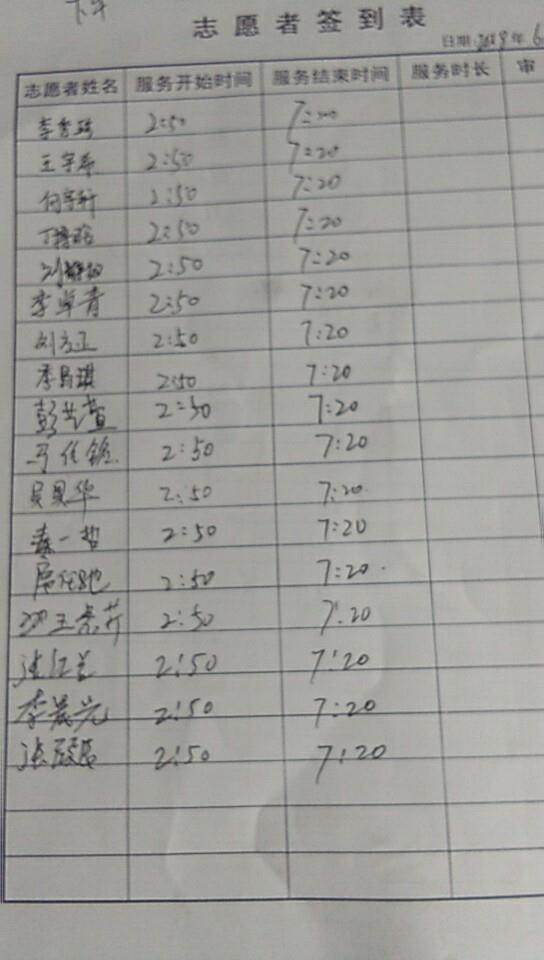 下午
志愿者签到表
日期: 年 6
志愿者姓名 服务开始时间 服务结束时间 服务时长 审
2:50 7:20
王宇 2:50 7:20
何宇轩 2:50 7:20
丁 2:50 7:20
刘 2:50 7:20
李卓青 2:50 7:20
刘方正 2:50 7:20
李昌琪 2:50 7:20
彭 2:50 7:20
马佳 2:50 7:20
贝贝华 2:50 7:20
秦一哲 2:50 7:20
2:50 7:20
2:50 7:20
张红兰 2:50 7:20
李晨光 2:50 7:20
张 2:50 7:20